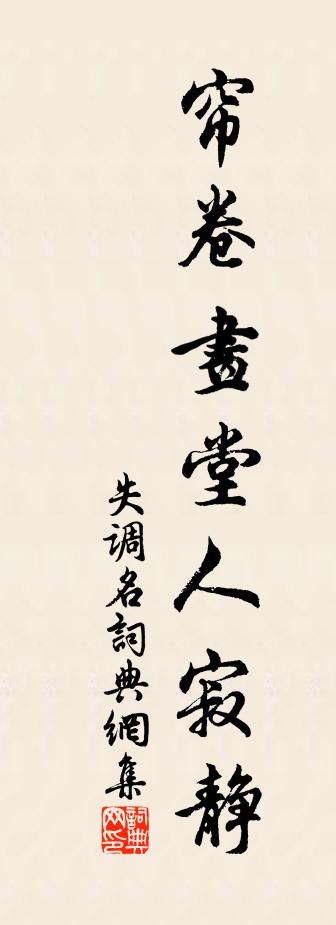 帘卷畫堂人寂静
失调名詞典網集
詞典網印